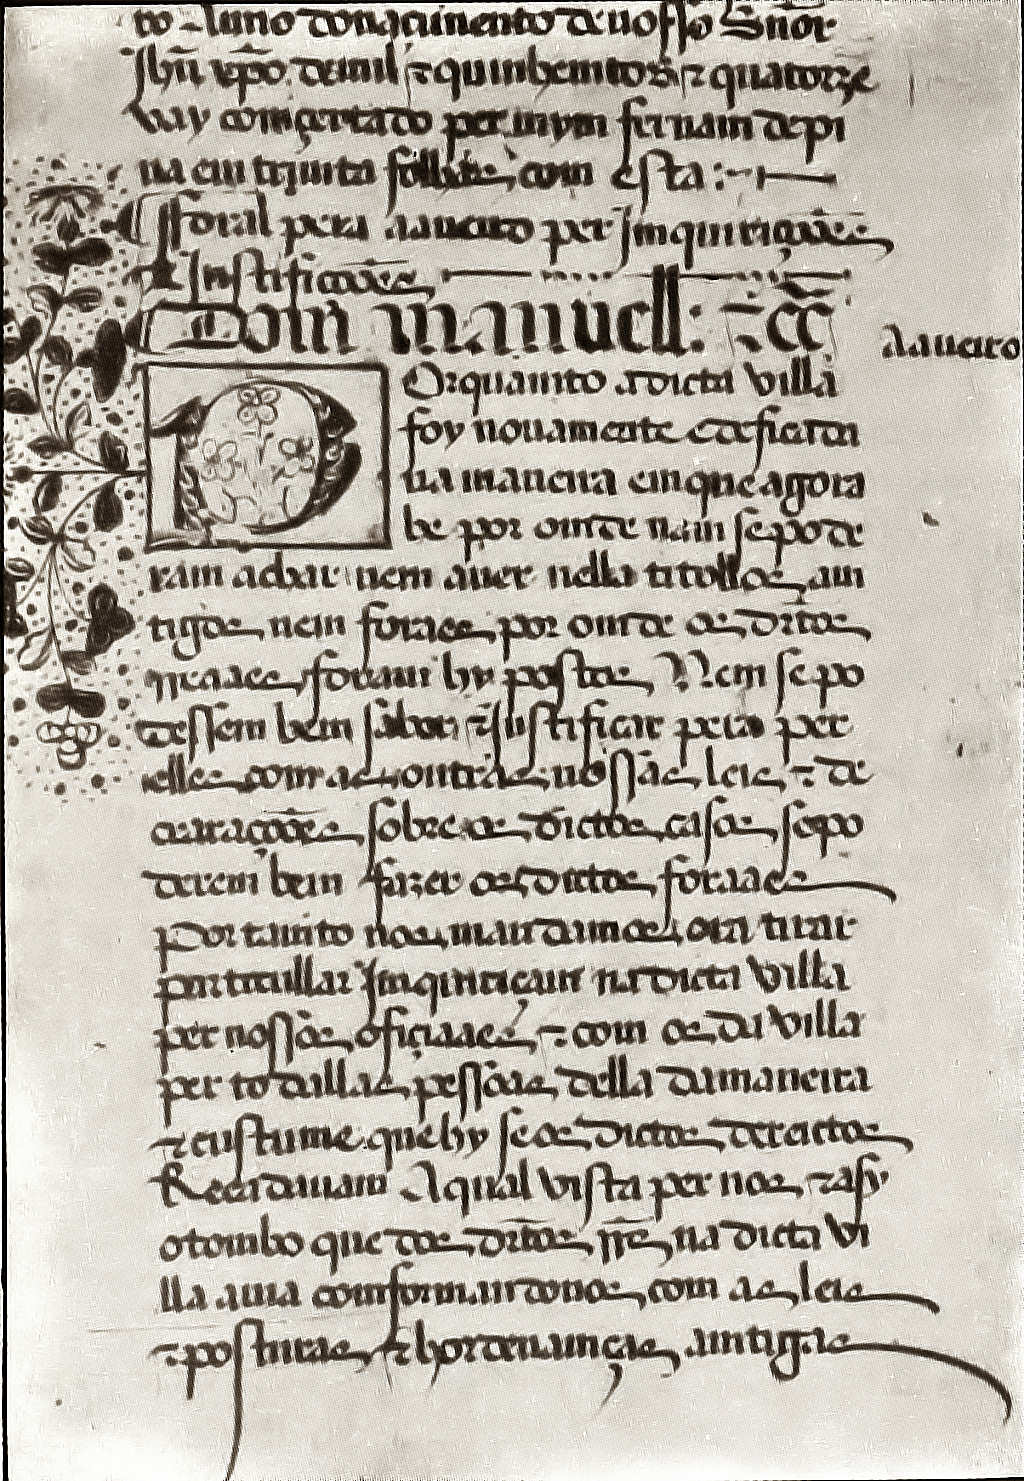 to Anno do naçimento de nosso Sñor
Jhũ xp̃o de mil ⁊ quinhemtos ⁊ quatorze
vay comçertado per mym fernam depi
na em trijnta folhas com esta :~
fforal pera aaueiro per Jmquiriçoões
⁊ Justificaçoões
Dom manuell: ⁊cc̃
aaueiro
Orquamto adicta villa
foy nouamente edeficada
da maneira em que agora
he por omde nam se pode
ram achar nem auer nella titollos am
tigos nem foraaes por omde os dr̃tos
rreaaes foram hy postos, Nem se po
dessem bem saber ⁊ Justificar pera per
elles com as outras nossas leis ⁊ de
craraçoões sobre os dictos casos se po
derem bem fazer os dictos foraaes
Portamto nos mandamos ora tirar
particullar Jmquiriçam na dicta villa
per nossos ofiçiaaes ⁊ com os da villa
per todallas pessoas della da maneira
⁊ custume que hy se os dictos dereictos
Recadauam A qual vista per nos, ⁊ asy
o tombo que dos dr̃tos rr̃s na dicta vi
lla auia comformandonos com as leis
⁊ posturas ⁊ hordenamças amtigas